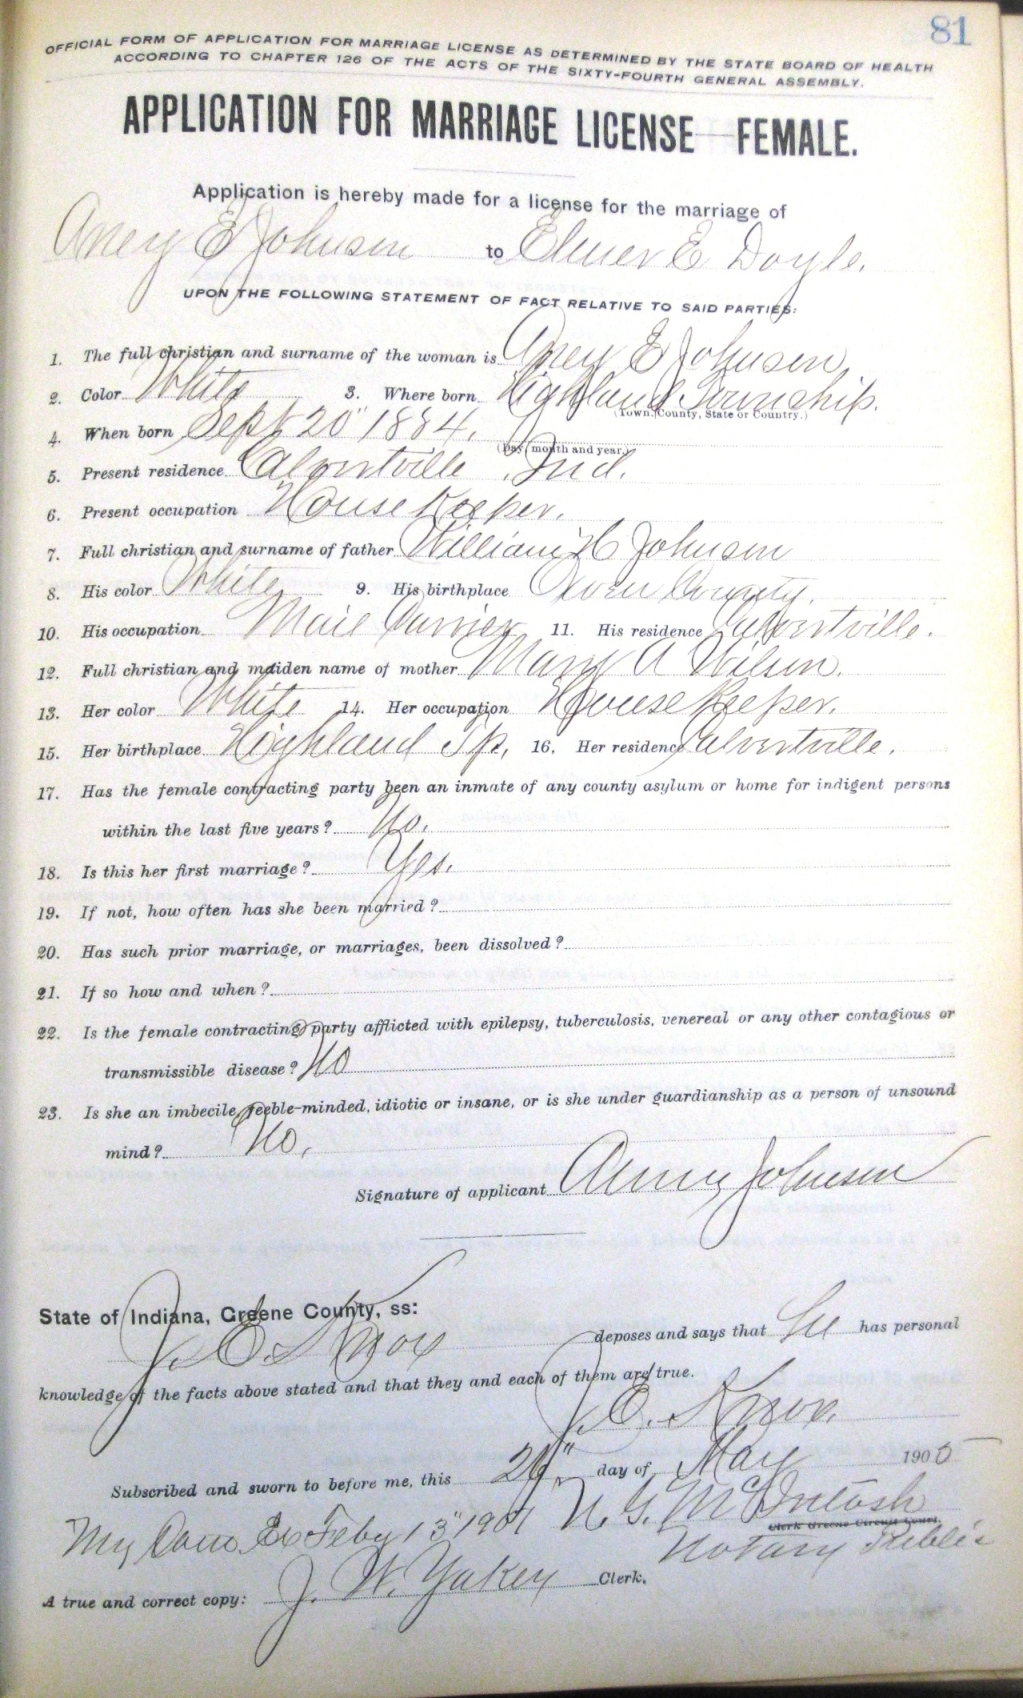 81
OFFICIAL FORM OF APPLICATION FOR MARRIAGE LICENSE AS DETERMINED BY THE STATE BOARD OF HEALTH
ACCORDING TO CHAPTER 126 OF THE ACTS OF THE SIXTY-FOURTH GENERAL ASSEMBLY.
APPLICATION FOR MARRIAGE LICENSE—FEMALE.
Application is hereby made for a license for the marriage of
E Johnson to Elmer E Doyle.
UPON THE FOLLOWING STATEMENT OF FACT RELATIVE TO SAID PARTIES:
1. The full christian and surname of the woman is E Johnson
2. Color White 3. Where born Highland Township.
(Town, County, State or Country.)
4. When born Sept 20" 1884.
(Day, month and year.)
5. Present residence Calvertville, Ind.
6. Present occupation House Keeper.
7. Full christian and surname of father William H Johnson
8. His color White 9. His birthplace Owen County.
10. His occupation Mail Carrier 11. His residence Calvertville.
12. Full christian and maiden name of mother Mary A Wilson.
13. Her color White 14. Her occupation House Keeper.
15. Her birthplace Highland Tp. 16. Her residence Calvertville.
17. Has the female contracting party been an inmate of any county asylum or home for indigent persons
within the last five years? No.
18. Is this her first marriage? Yes.
19. If not, how often has she been married?
20. Has such prior marriage, or marriages, been dissolved?
21. If so how and when?
22. Is the female contracting party afflicted with epilepsy, tuberculosis, venereal or any other contagious or
transmissible disease? No
23. Is she an imbecile, feeble-minded, idiotic or insane, or is she under guardianship as a person of unsound
mind? No.
Signature of applicant Johnson
State of Indiana, Greene County, ss:
J. E. Knox deposes and says that he has personal
knowledge of the facts above stated and that they and each of them are true.
J. E. Knox.
Subscribed and sworn to before me, this day of May 1905
My Com. Ex Feby 13" 1907 N. G. McIntosh
Clerk Greene Circuit Court.
Notary Public
A true and correct copy: J. W. Yakey Clerk.